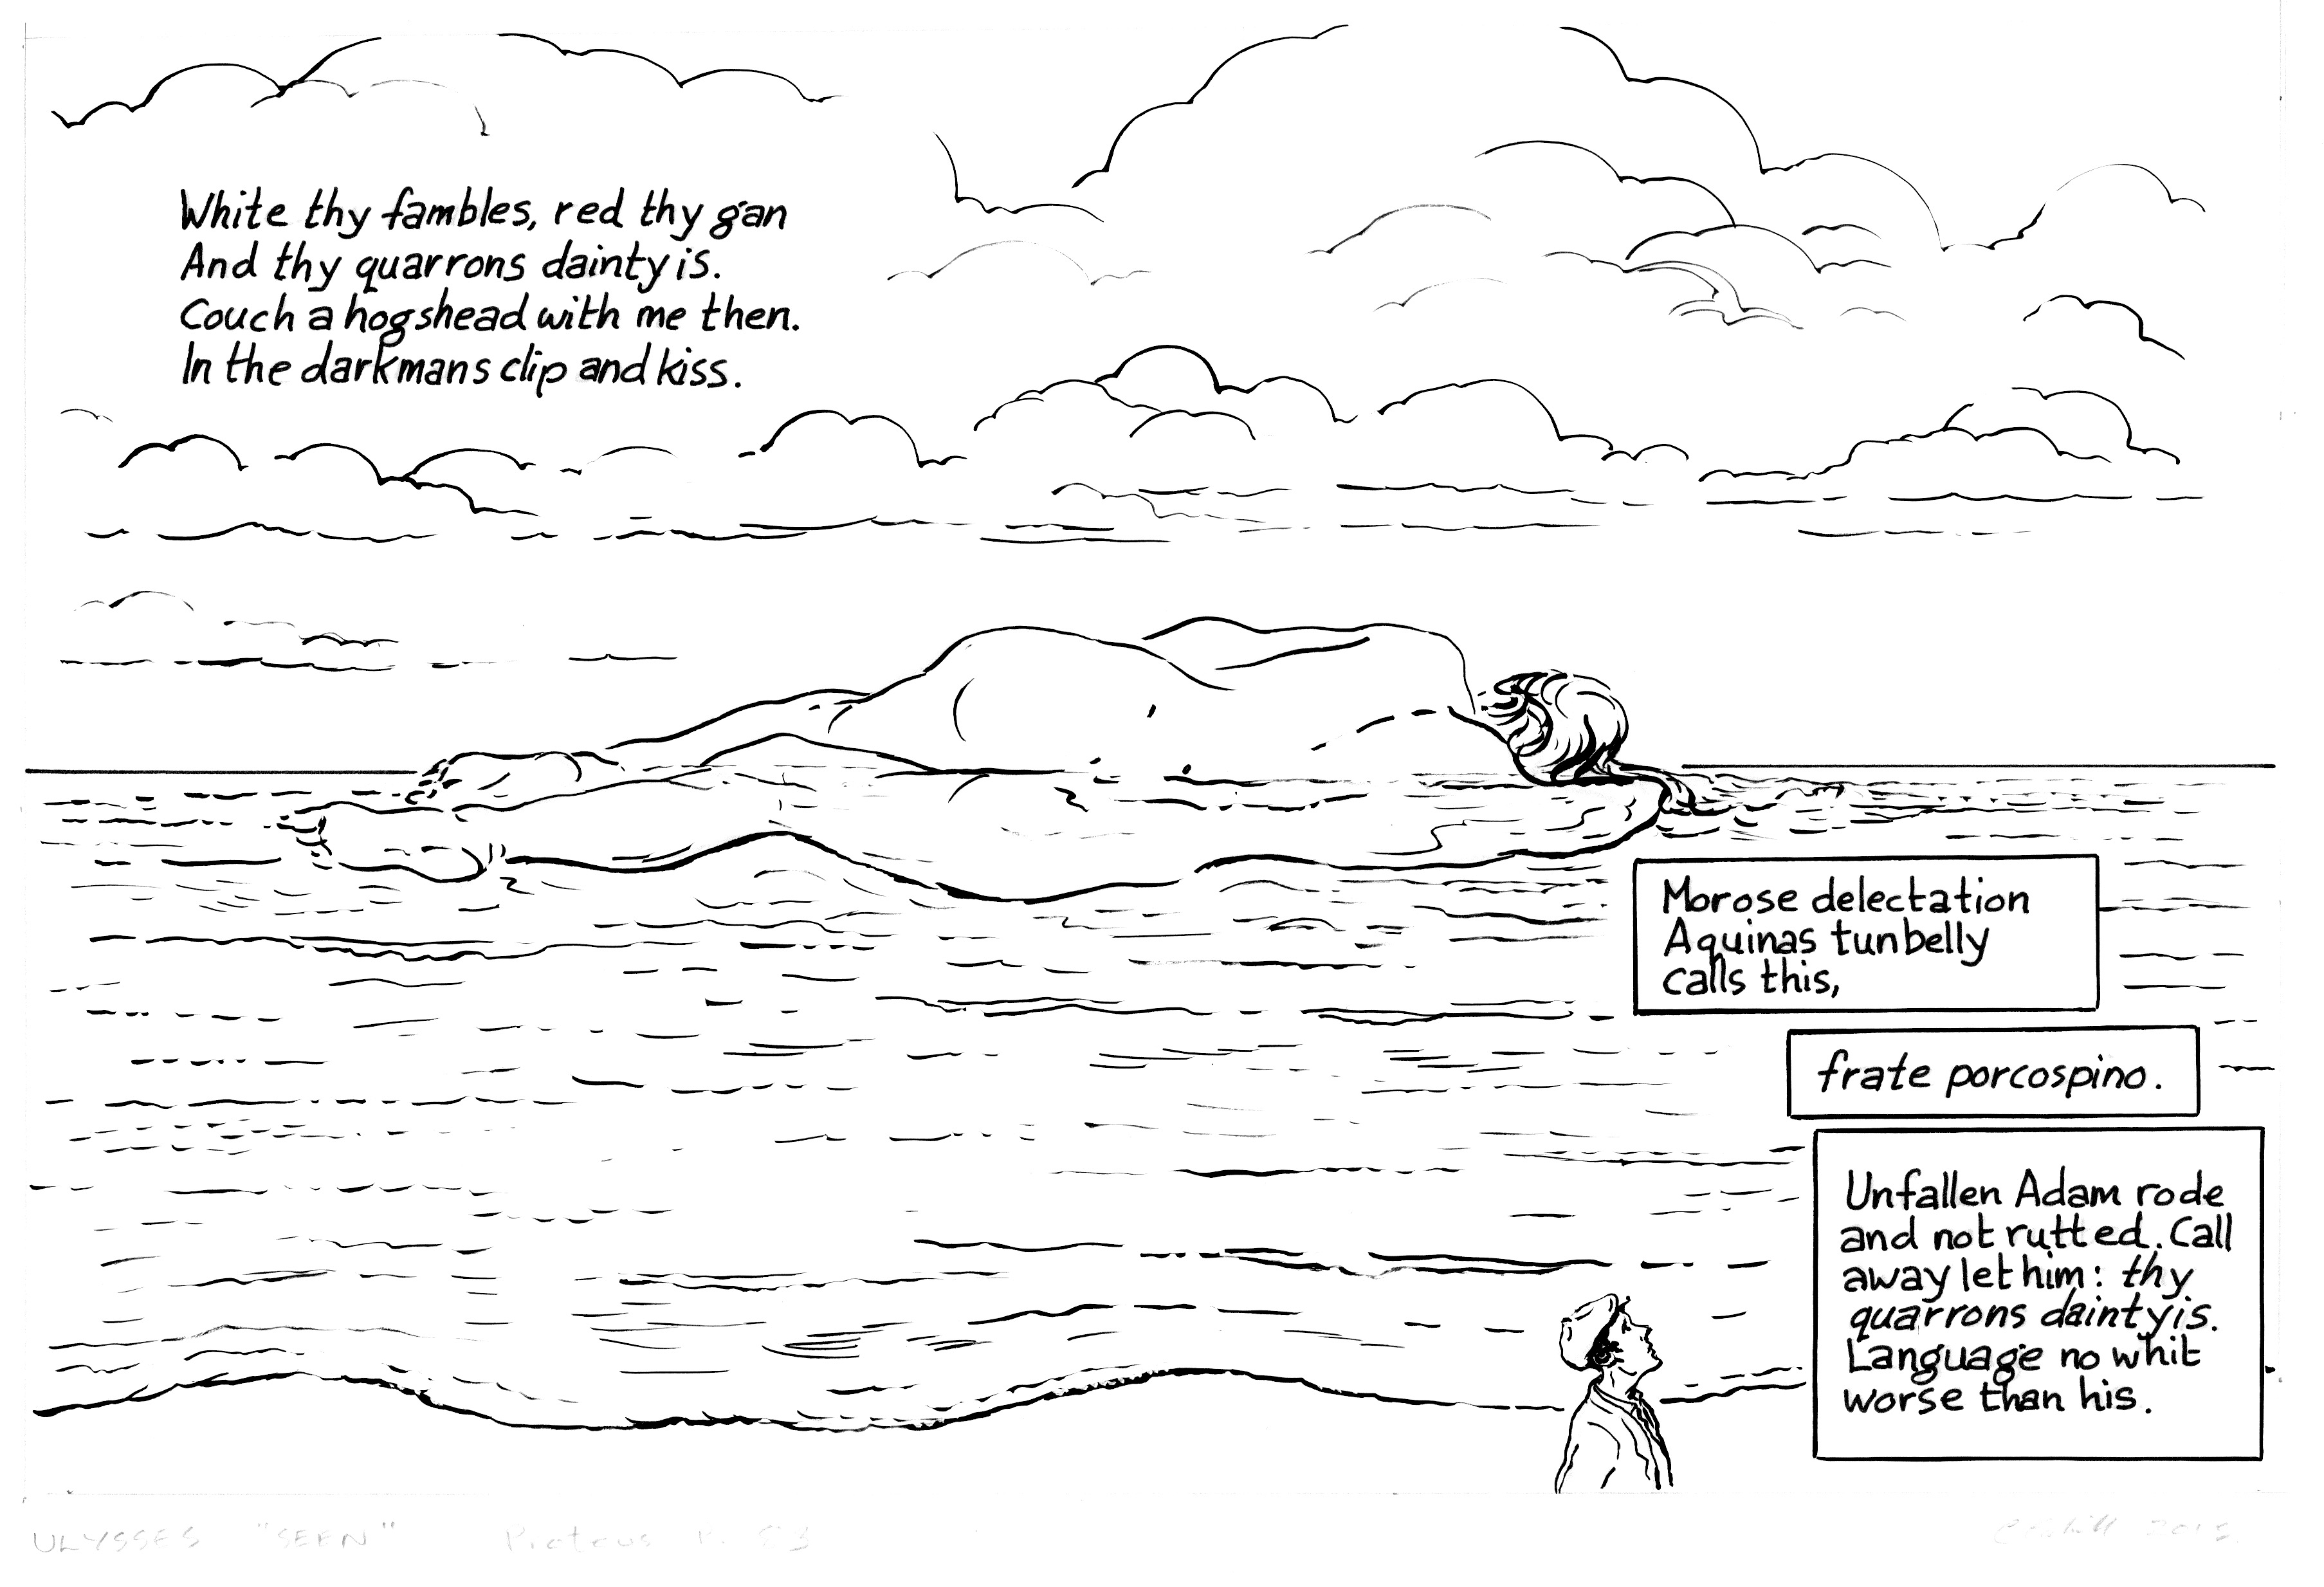 White thy fambles, red thy gan
And thy quarrons dainty is.
Couch a hogshead with me then.
In the darkmans clip and kiss.
Morose delectation
Aquinas tunbelly
calls this,
frate porcospino.
Unfallen Adam rode
and not rutted. Call
away let him: thy
quarrons dainty is.
Language no whit
worse than his.
ULYSSES "SEEN" Proteus